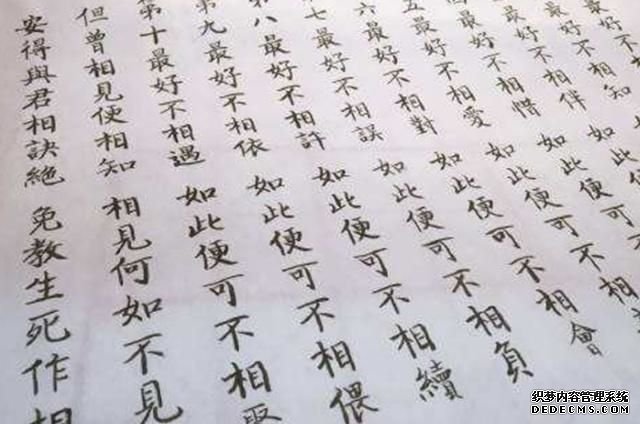 不相知
好不相伴 如
最好不相惜 如此便可不
五最好不相愛 如此便可不相
六最好不相對 如此便可不相會
七最好不相誤 如此便可不相負
第八最好不相許 如此便可不相續
第九最好不相依 如此便可不相偎
第十最好不相遇 如此便可不相
但曾相見便相知 相見何如不見
安得與君相訣絕 免教生死作相
织梦内容管理系统
DEDECMS.COM